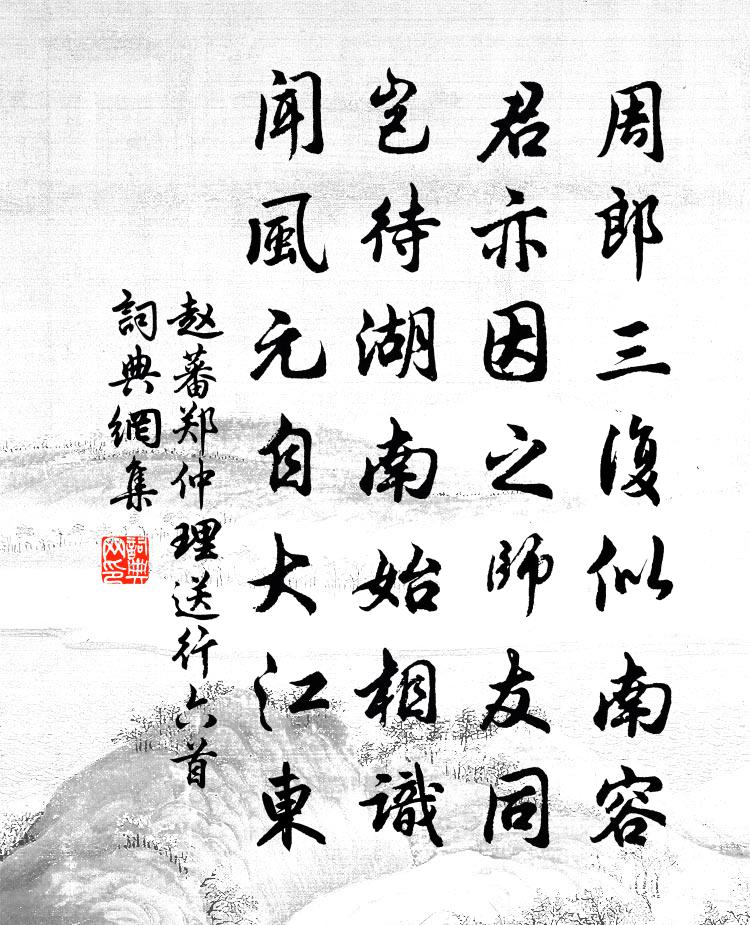 周郎三復似南容
君亦因之師友同
豈待湖南始相識
聞風元自大江東
赵蕃郑仲理送行六首
詞典網集
詞典
网印